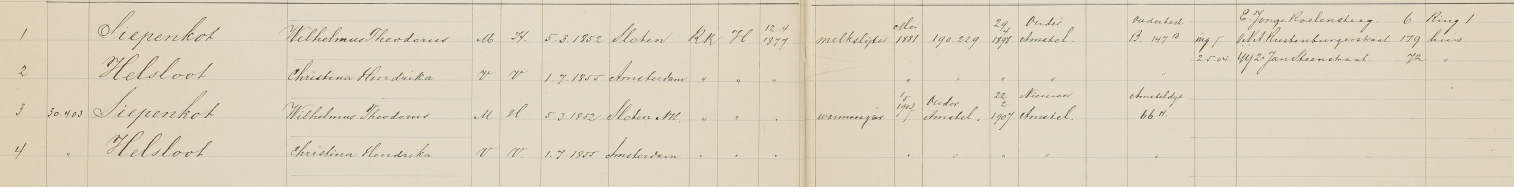 E. Jonge Roelensteeg. 6 Ring 1
1 Siepenkot Wilhelmus Theodorus M H. 5.3.1852 Sloten RK H 12/4 1877 melkslijter Mei 1881 190.229 29/4 1898 Ouder Amstel. Ouderkerk B. 147 B ing 5 Rustenburgerstraat 179 huis
2 Helsloot Christina Hendrika V V 1.7.1855 Amsterdam " " " " " " " " 25.04 2e Jan Steenstraat 72 "
3 30.4.03 Siepenkot Wilhelmus Theodorus M H 5.3.1852 Sloten NH. " " " 1903 Ouder Amstel. 22/2 1907 Nieuwer Amstel. Amsteldijk 66 H.
4 " Helsloot Christina Hendrika V V. 1.7.1855 Amsterdam " " " " " " " "